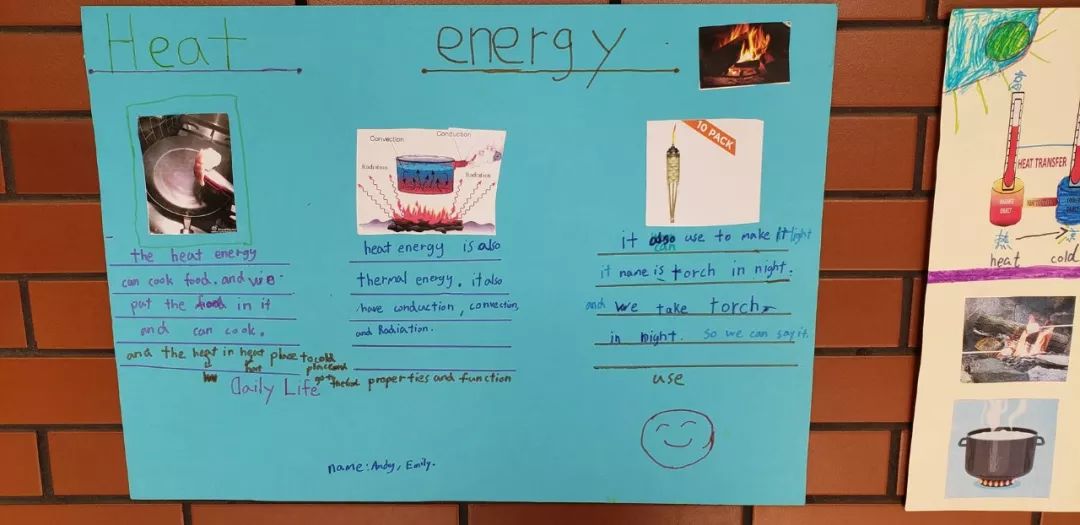 Heat energy
the heat energy
can cook food. and we
put the food in it
and can cook.
and the heat in heat place to cold
Daily Life
Convection
Conduction
Radiation
Radiation
heat energy is also
thermal energy. it also
have conduction, convection,
and Radiation.
properties and function
10 PACK
it can use to make light
it name is torch in night.
and we take torch
in night. So we can say it.
use
name: Andy, Emily.
HEAT TRANSFER
热
heat
cold